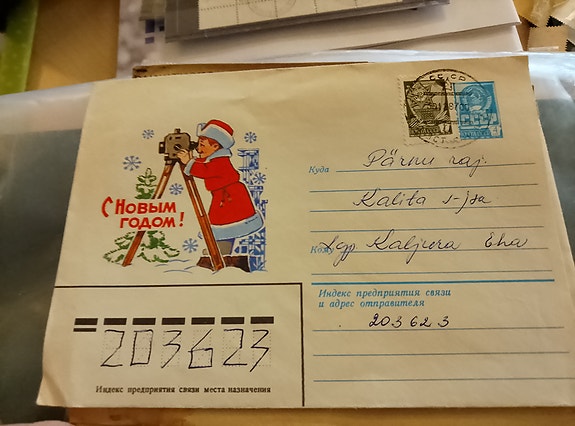 С НОВЫМ
ГОДОМ!
СССР
Куда
Pärnu raj.
Kalita s-jsk
Кому
Lgp Kaljura Eha
Индекс предприятия связи
и адрес отправителя
203623
203623
Индекс предприятия связи места назначения